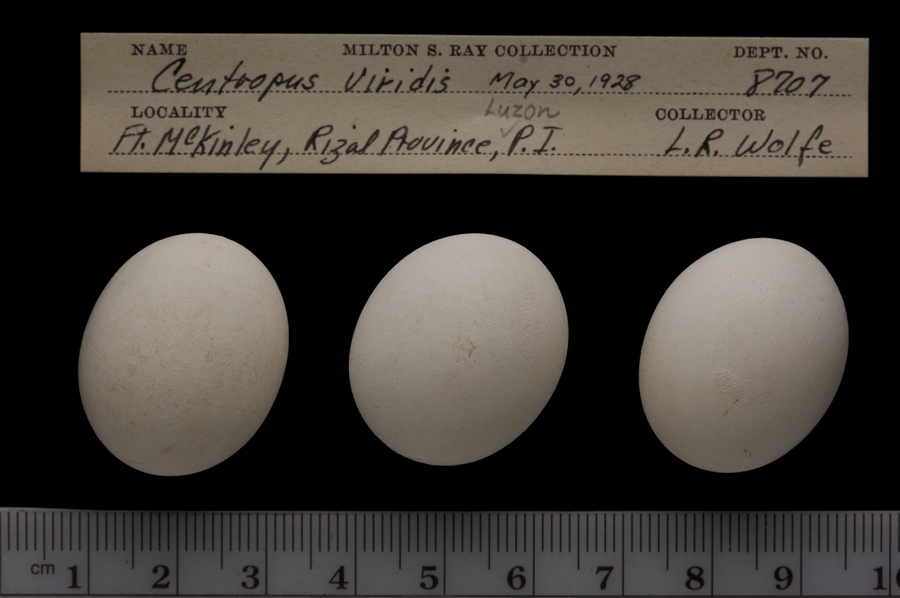 NAME MILTON S. RAY COLLECTION DEPT. NO.
Centropus Viridis May 30, 1928 8707
Luzon
LOCALITY COLLECTOR
Ft. McKinley, Rizal Province, P.I. L.R. Wolfe
cm 1 2 3 4 5 6 7 8 9